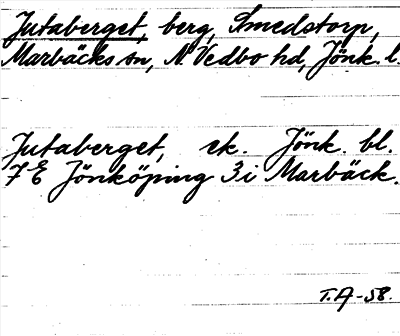 Jutaberget, berg, Smedstorp,
Marbäcks sn, N Vedbo hd, Jönk. l.
Jutaberget, ek. Jönk. bl.
7 E Jönköping 3i Marbäck.
T.A-58.